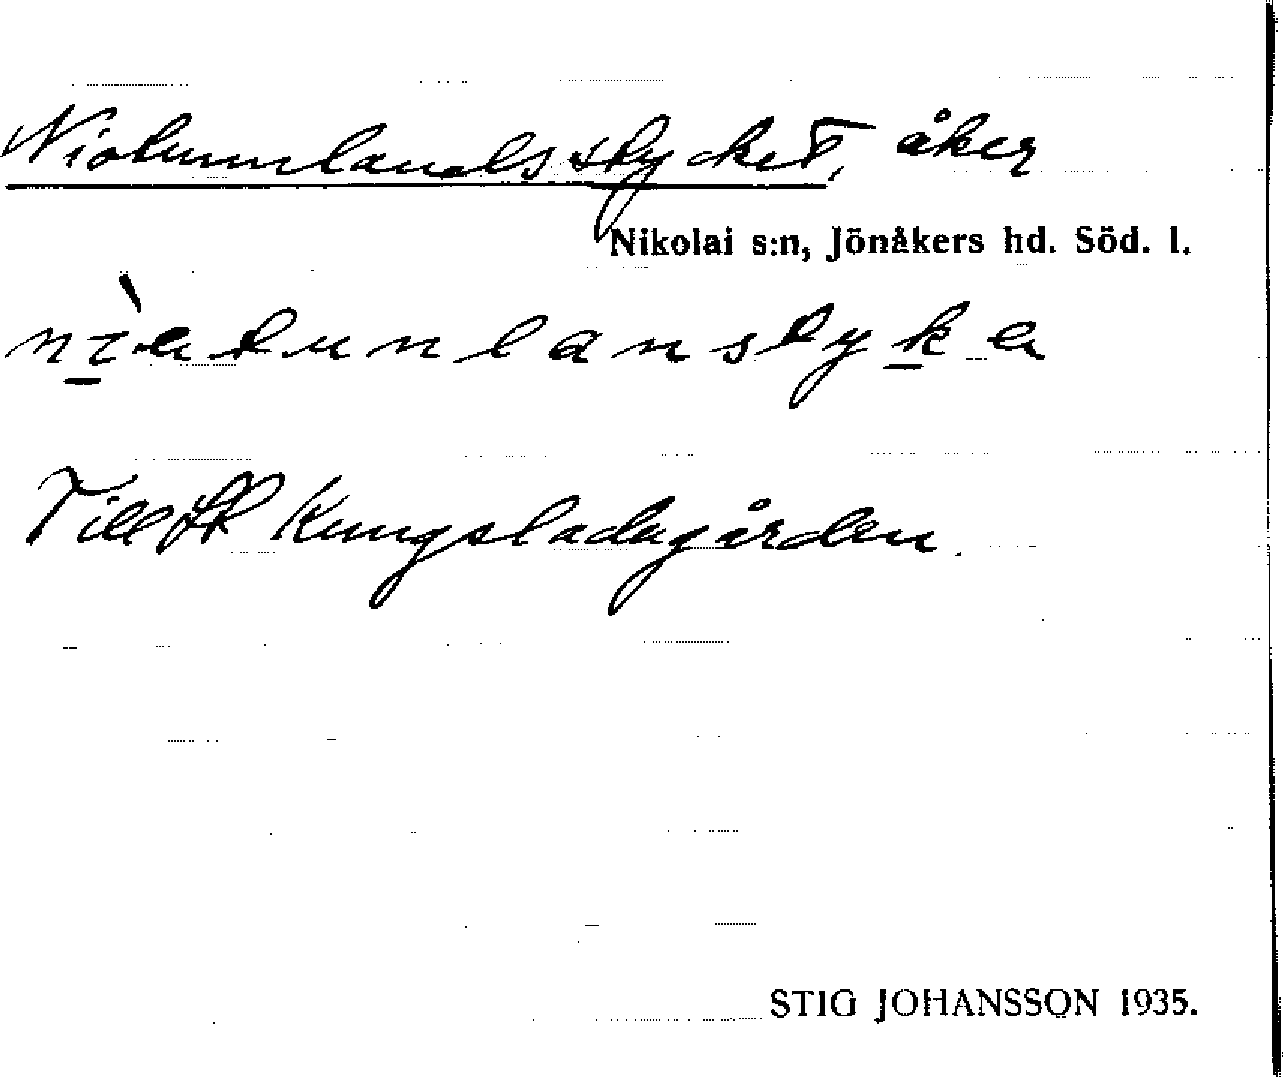 Niotunnlandsstycket, åker
Nikolai s:n, Jönåkers hd. Söd. l.
Till St Kungsladugården.
STIG JOHANSSON 1935.